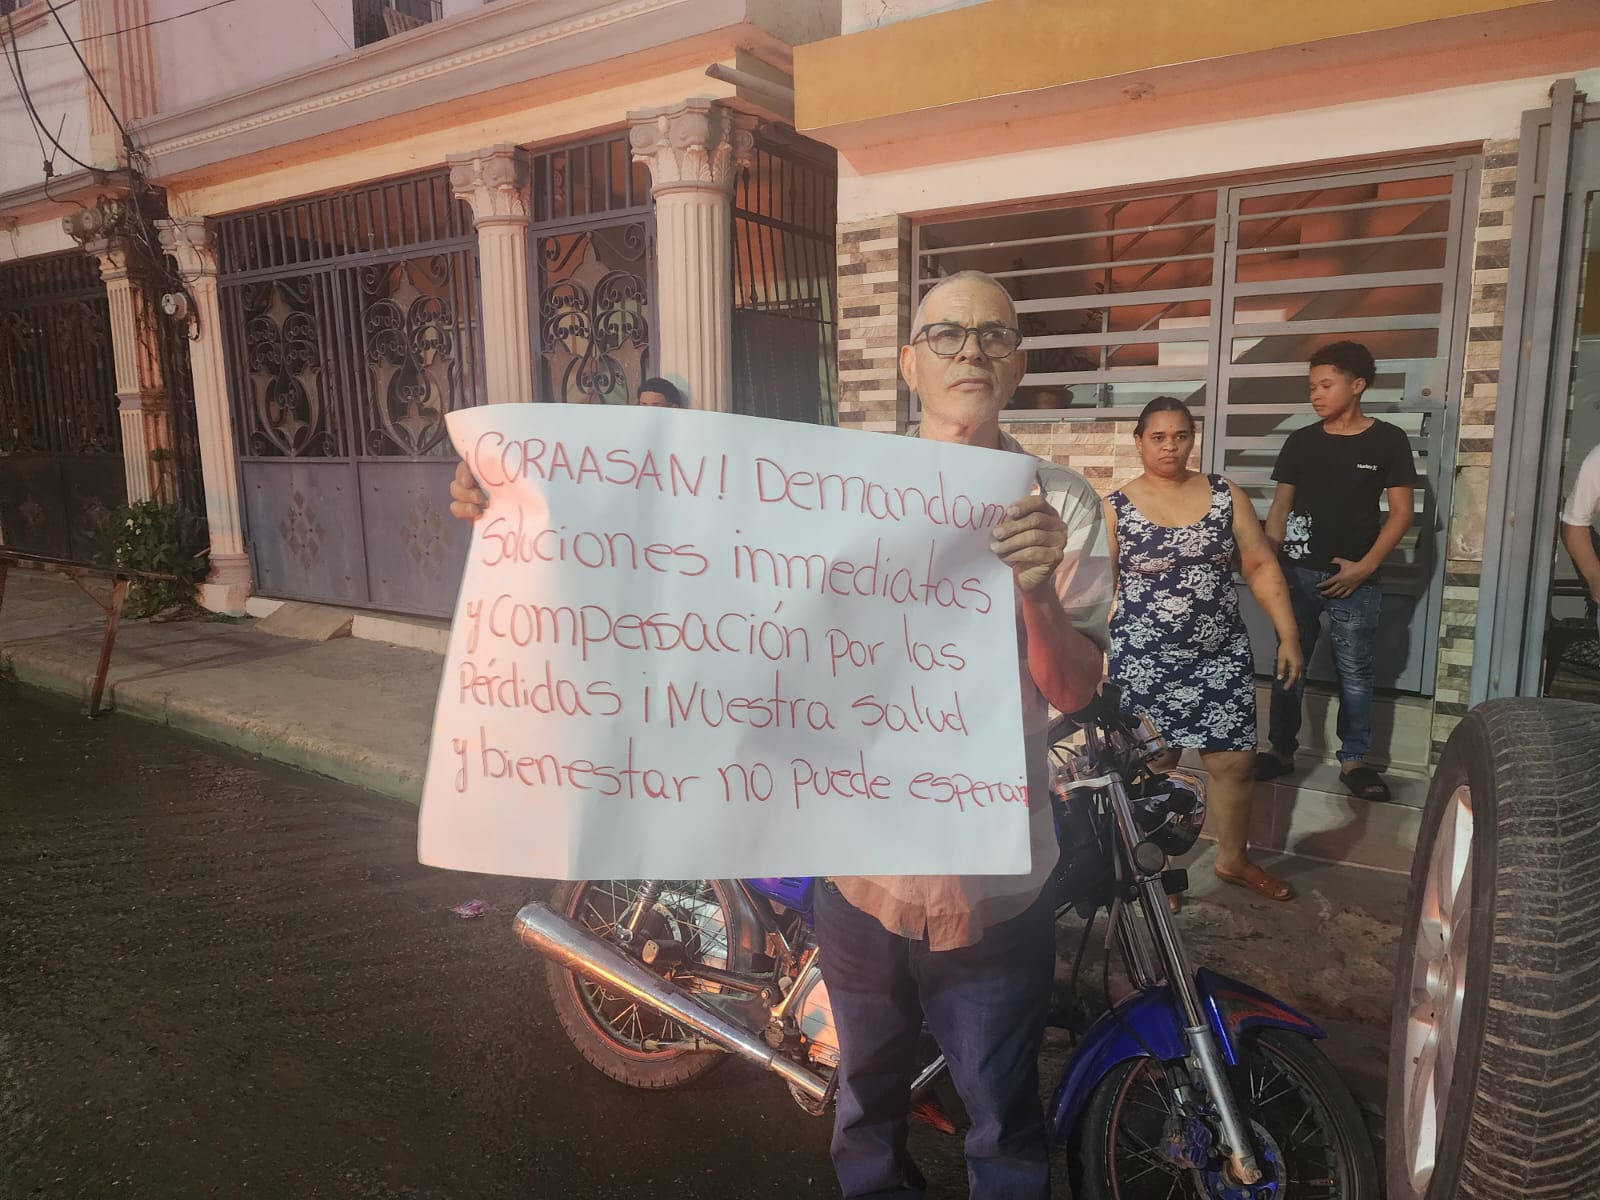 ¡CORAASAN! Demandam
soluciones inmediatas
y compensación por las
Pérdidas ¡Nuestra salud
y bienestar no puede esperar
Hurley